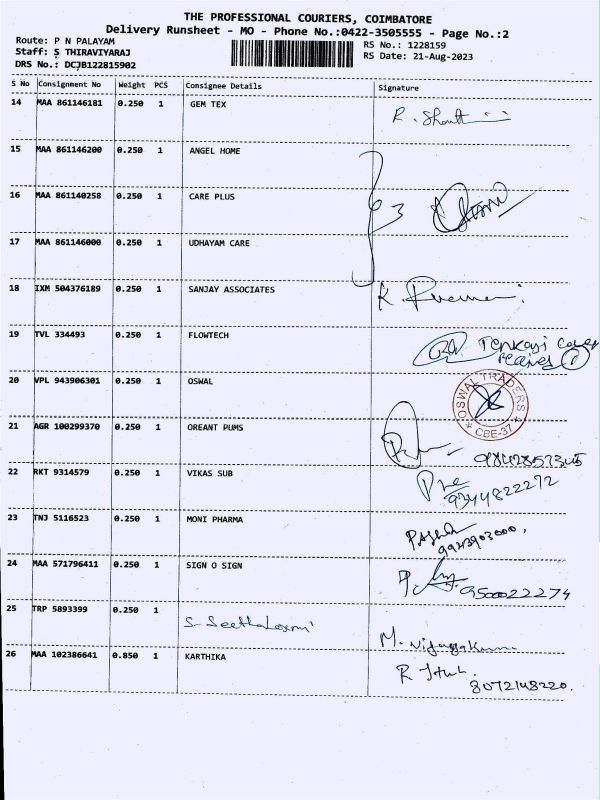 THE PROFESSIONAL COURIERS, COIMBATORE
Delivery Runsheet - MO - Phone No.:0422-3505555 - Page No.:2
Route: P N PALAYAM
Staff: S THIRAVIYARAJ
DRS No.: DCJB122815902
RS No.: 1228159
RS Date: 21-Aug-2023
S No Consignment No Weight PCS Consignee Details Signature
14 MAA 861146181 0.250 1 GEM TEX
15 MAA 861146200 0.250 1 ANGEL HOME
16 MAA 861140258 0.250 1 CARE PLUS
3
17 MAA 861146000 0.250 1 UDHAYAM CARE
18 IXM 504376189 0.250 1 SANJAY ASSOCIATES
19 TVL 334493 0.250 1 FLOWTECH
Tenkasi Cover
20 VPL 943906301 0.250 1 OSWAL
OSWAL TRADERS
CBE-37
21 AGR 100299370 0.250 1 OREANT PUMS
22 RKT 9314579 0.250 1 VIKAS SUB
9344822272
23 TNJ 5116523 0.250 1 MONI PHARMA
9943903000.
24 MAA 571796411 0.250 1 SIGN O SIGN
9500022274
25 TRP 5893399 0.250 1
S. SeethaLaxmi
26 MAA 102386641 0.850 1 KARTHIKA
8072148220.